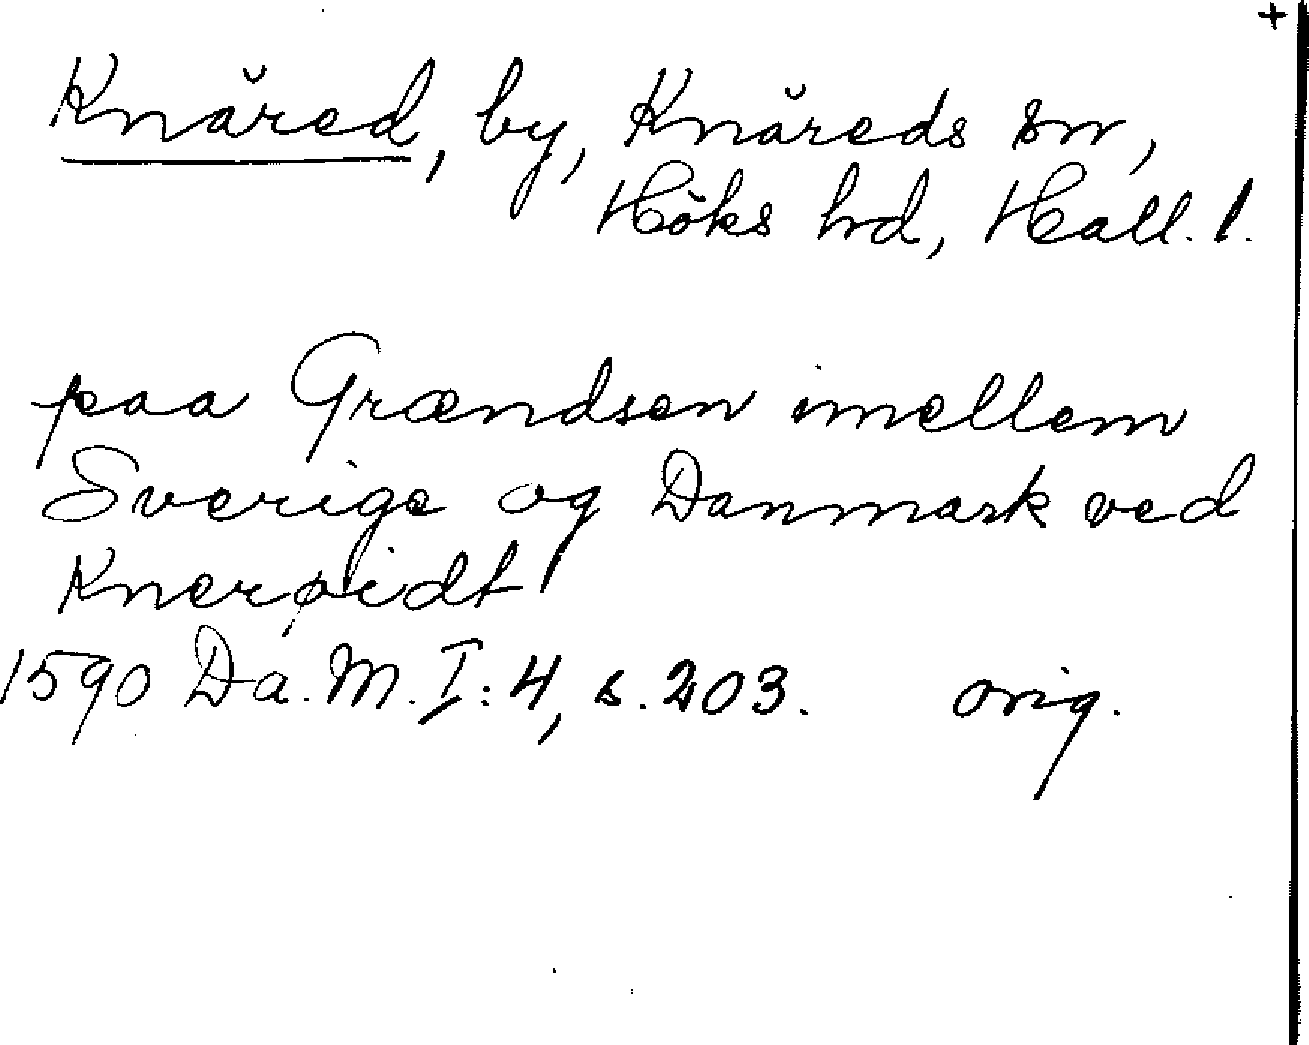 +
Knäred, by, Knäreds sn,
Höks hd, Hall. l.
paa Grændsen imellem
Sverige og Danmark ved
Knerøidt
1590 Da. M. I: 4, s. 203. orig.